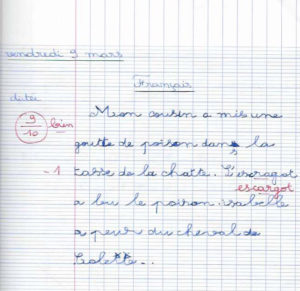 vendredi 9 mars
Français
dictée
9/10 bien
Mon cousin a mis une
goutte de poison dans la
-1 tasse de la chatte. L'escragot
escargot
a bu le poison. isabelle
a peur du cheval de
Colette..